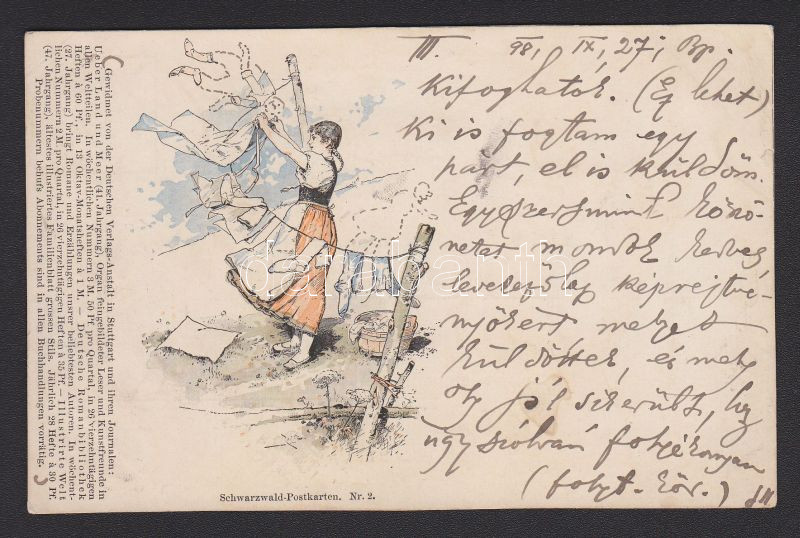 Gewidmet von der Deutschen Verlags-Anstalt in Stuttgart und ihren Journalen:
Ueber Land und Meer (41. Jahrgang), Organ feingebildeter Leser und Kunstfreunde in
allen Weltteilen. In wöchentlichen Nummern 3 M. 50 Pf. pro Quartal, in 26 vierzehntägigen
Heften à 60 Pf., in 13 Oktav-Monatsheften à 1 M. — Deutsche Romanbibliothek
(27. Jahrgang) bringt Romane und Erzählungen unsrer beliebtesten Autoren. In wöchent-
lichen Nummern 2 M. pro Quartal, in 26 vierzehntägigen Heften à 35 Pf. — Illustrirte Welt
(47. Jahrgang), ältestes illustriertes Familienblatt grossen Stils. Jährlich 28 Hefte à 30 Pf.
Probenummern behufs Abonnements sind in allen Buchhandlungen vorrätig.
III. 98, IX, 27, Bp.
Kifoghatók. (Ez lehet)
Ki is fogtam egy
part, el is küldöm.
Egyszersmint köszö-
netet mondok kedves
levelezőlap képrejtvé-
nyókért melyet
küldöttek, és mely
oly jól sikerült, hogy
úgy szólván
(folyt. köv.)
Schwarzwald-Postkarten. Nr. 2.
darabanth